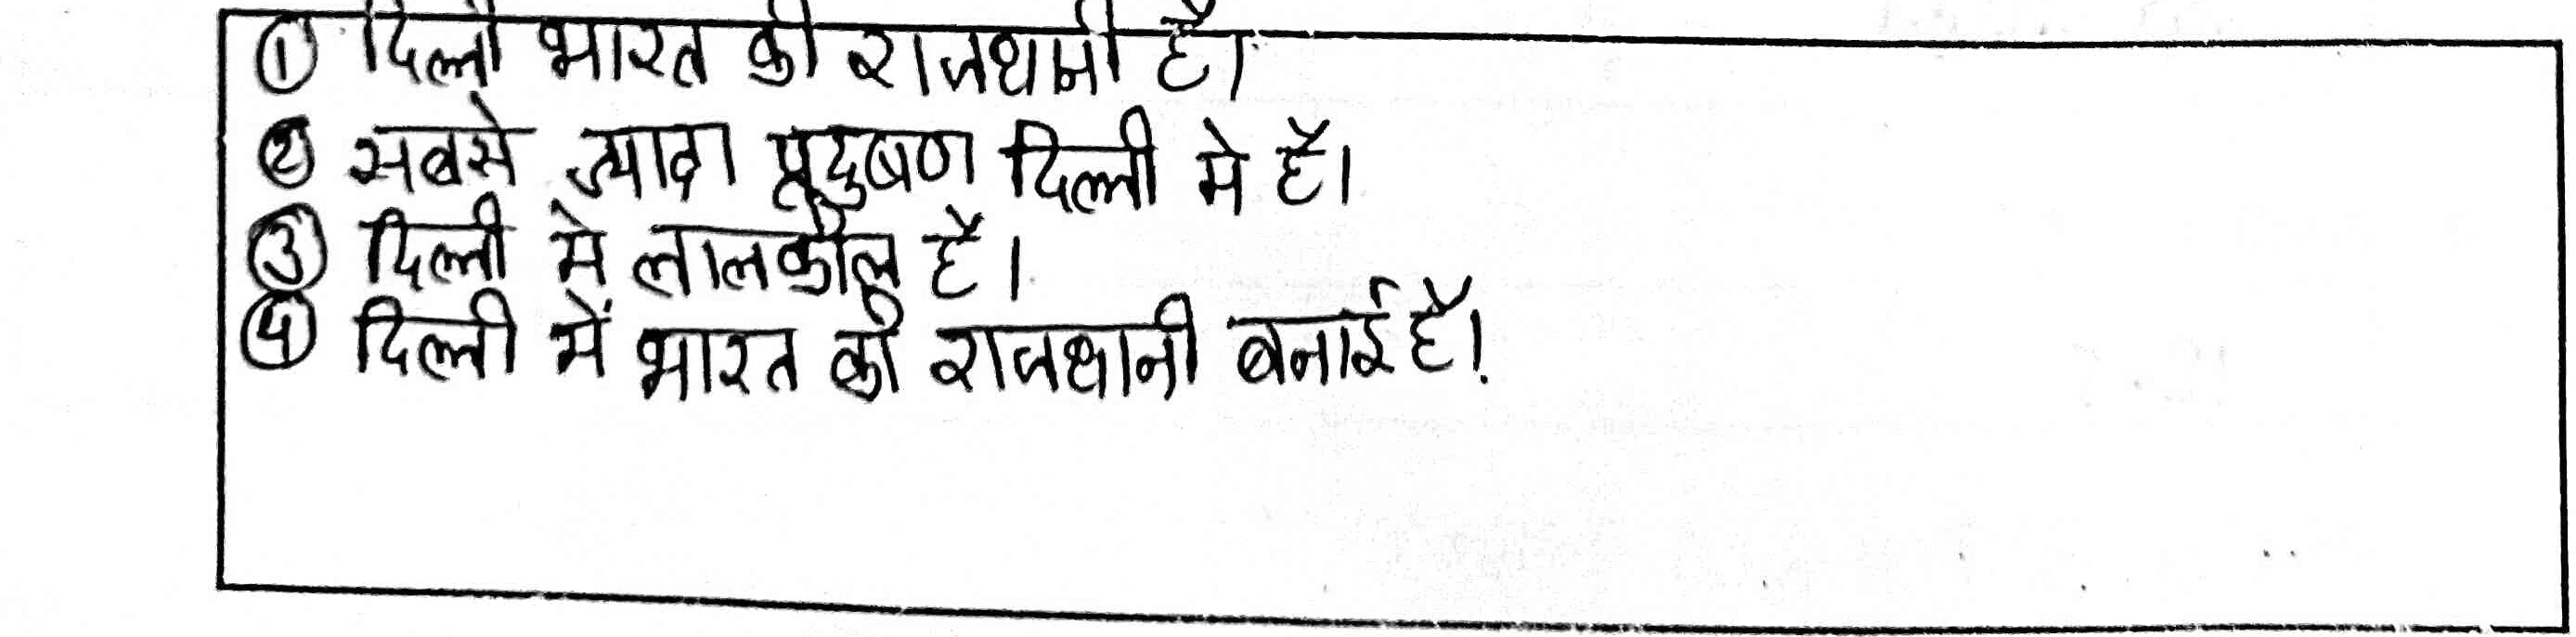 ① दिल्ली भारत की राजधानी है।
② सबसे ज्यादा प्रदुषण दिल्ली मे है।
③ दिल्ली मे लालकील है।
④ दिल्ली में भारत की राजधानी बनाई है।